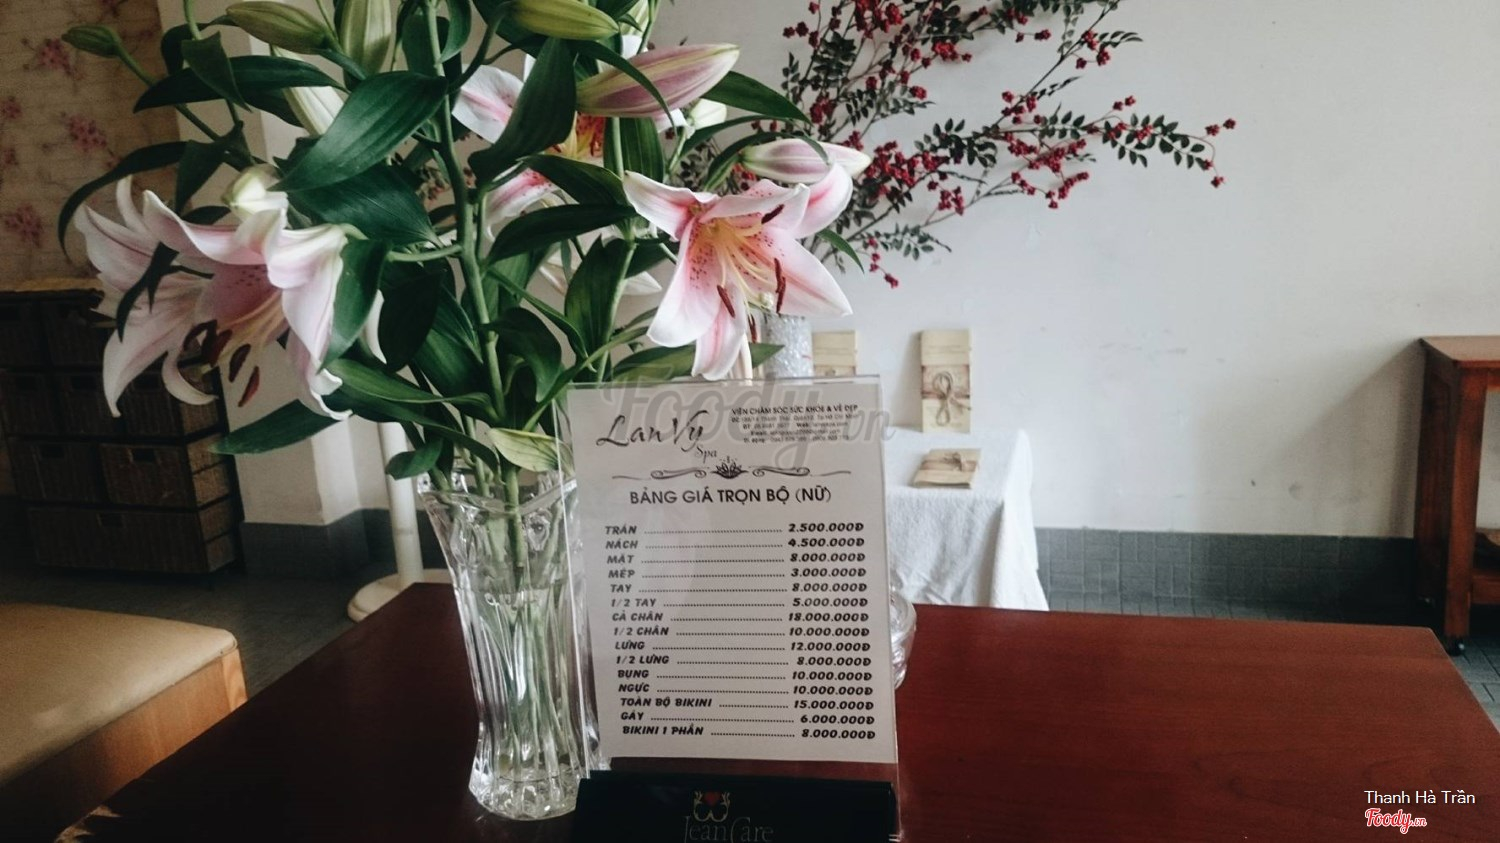 LanVy
Spa
VIỆN CHĂM SÓC SỨC KHỎE & VẺ ĐẸP
BẢNG GIÁ TRỌN BỘ (NỮ)
TRÁN 2.500.000Đ
NÁCH 4.500.000Đ
MẶT 8.000.000Đ
MÉP 3.000.000Đ
TAY 8.000.000Đ
1/2 TAY 5.000.000Đ
CẢ CHÂN 18.000.000Đ
1/2 CHÂN 10.000.000Đ
LƯNG 12.000.000Đ
1/2 LƯNG 8.000.000Đ
BỤNG 10.000.000Đ
NGỰC 10.000.000Đ
TOÀN BỘ BIKINI 15.000.000Đ
GÁY 6.000.000Đ
BIKINI 1 PHẦN 8.000.000Đ
JeanCare
Foody.vn
Thanh Hà Trần
Foody.vn